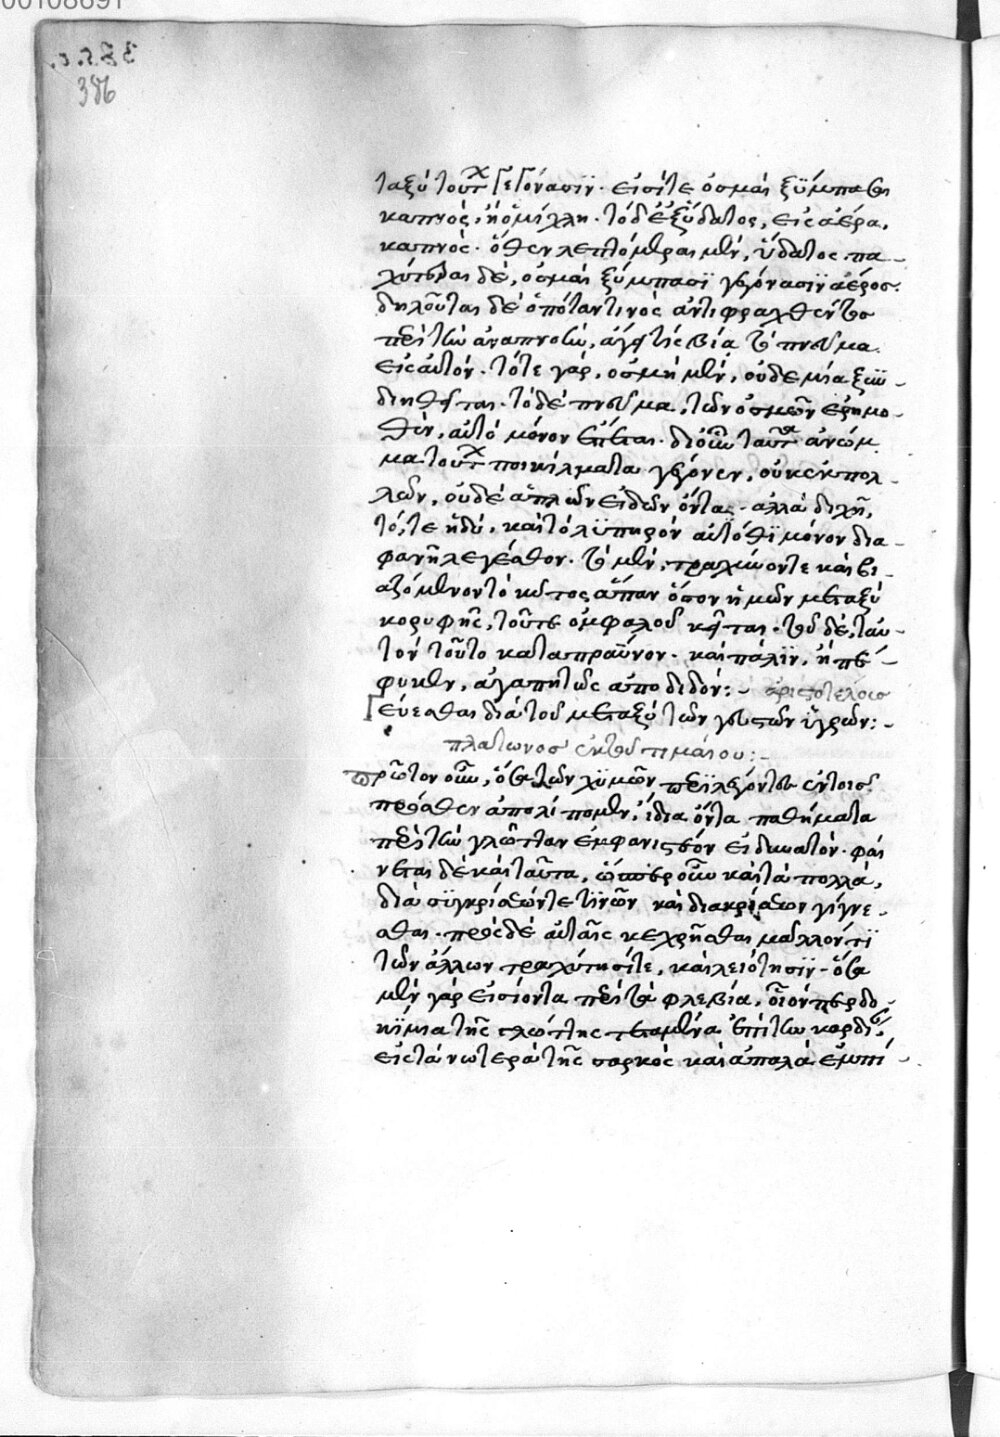 00108691
386
ταξὺ τούτων γεγόνασιν· εἰσί τε ὀσμαὶ ξύμπασαι
καπνὸς, ἢ ὀμίχλη· τὸ δὲ ἐξ ὕδατος, εἰς ἀέρα,
καπνὸς· ὅθεν λεπτόμεραι μὲν, ὕδατος· πα-
χύτεραι δὲ, ὀσμαὶ ξύμπασαι γεγόνασιν ἀέρος·
δηλοῦται δὲ ὁπόταν τινὸς ἀντιφραχθέντος
περὶ τὴν ἀναπνοὴν, ἄγῃ τις βίᾳ τὸ πνεῦμα
εἰς αὑτόν· τότε γὰρ, ὀσμὴ μὲν, οὐδεμία ξυν-
διηθεῖται· τὸ δὲ πνεῦμα, τῶν ὀσμῶν ἐρημω-
θὲν, αὐτὸ μόνον ἕπεται· δι' οὖν ταῦτα ἀνώνυ-
μα τούτων ποικίλματα γέγονεν, οὐκ ἐκ πολ-
λῶν, οὐδὲ ἁπλῶν εἰδῶν ὄντα· ἀλλὰ διχῇ,
τό, τε ἡδὺ, καὶ τὸ λυπηρὸν αὐτόθι μόνον δια-
φανῆ λέγεσθον· τὸ μὲν, τραχύνον τε καὶ βι-
αζόμενον τὸ κύτος ἅπαν ὅσον ἡμῶν μεταξὺ
κορυφῆς, τοῦ τε ὀμφαλοῦ κεῖται· τὸ δὲ, ταυ-
τὸν τοῦτο καταπραῦνον· καὶ πάλιν, ᾗ πέ-
φυκεν, ἀγαπητῶς ἀποδιδόν:- ἀριστοτέλους
Γεύεσθαι διὰ τοῦ μεταξὺ τῶν γευστῶν ὑγρῶν:-
πλάτωνος ἐκ τοῦ τιμαίου:-
πρῶτον οὖν, ὅσα τῶν χυμῶν περὶ λέγοντες ἐν τοῖς
πρόσθεν ἀπολίπομεν, ἴδια ὄντα παθήματα
περὶ τὴν γλῶτταν ἐμφανιστέον εἰ δυνατόν· φαί
νεται δὲ καὶ ταῦτα, ὥσπερ οὖν καὶ τὰ πολλὰ,
διὰ συγκρίσεών τε τινῶν καὶ διακρίσεων γίγνε-
σθαι· πρὸς δὲ αὐταῖς κεχρῆσθαι μᾶλλόν τι
τῶν ἄλλων τραχύτησί τε, καὶ λειότησιν· ὅσα
μὲν γὰρ εἰσιόντα περὶ τὰ φλέβια, οἷόν περ δο-
κίμια τῆς γλώττης τεταμένα ἐπὶ τὴν καρδίαν
εἰς τὰ νοτερὰ τῆς σαρκὸς καὶ ἁπαλὰ ἐμπί-